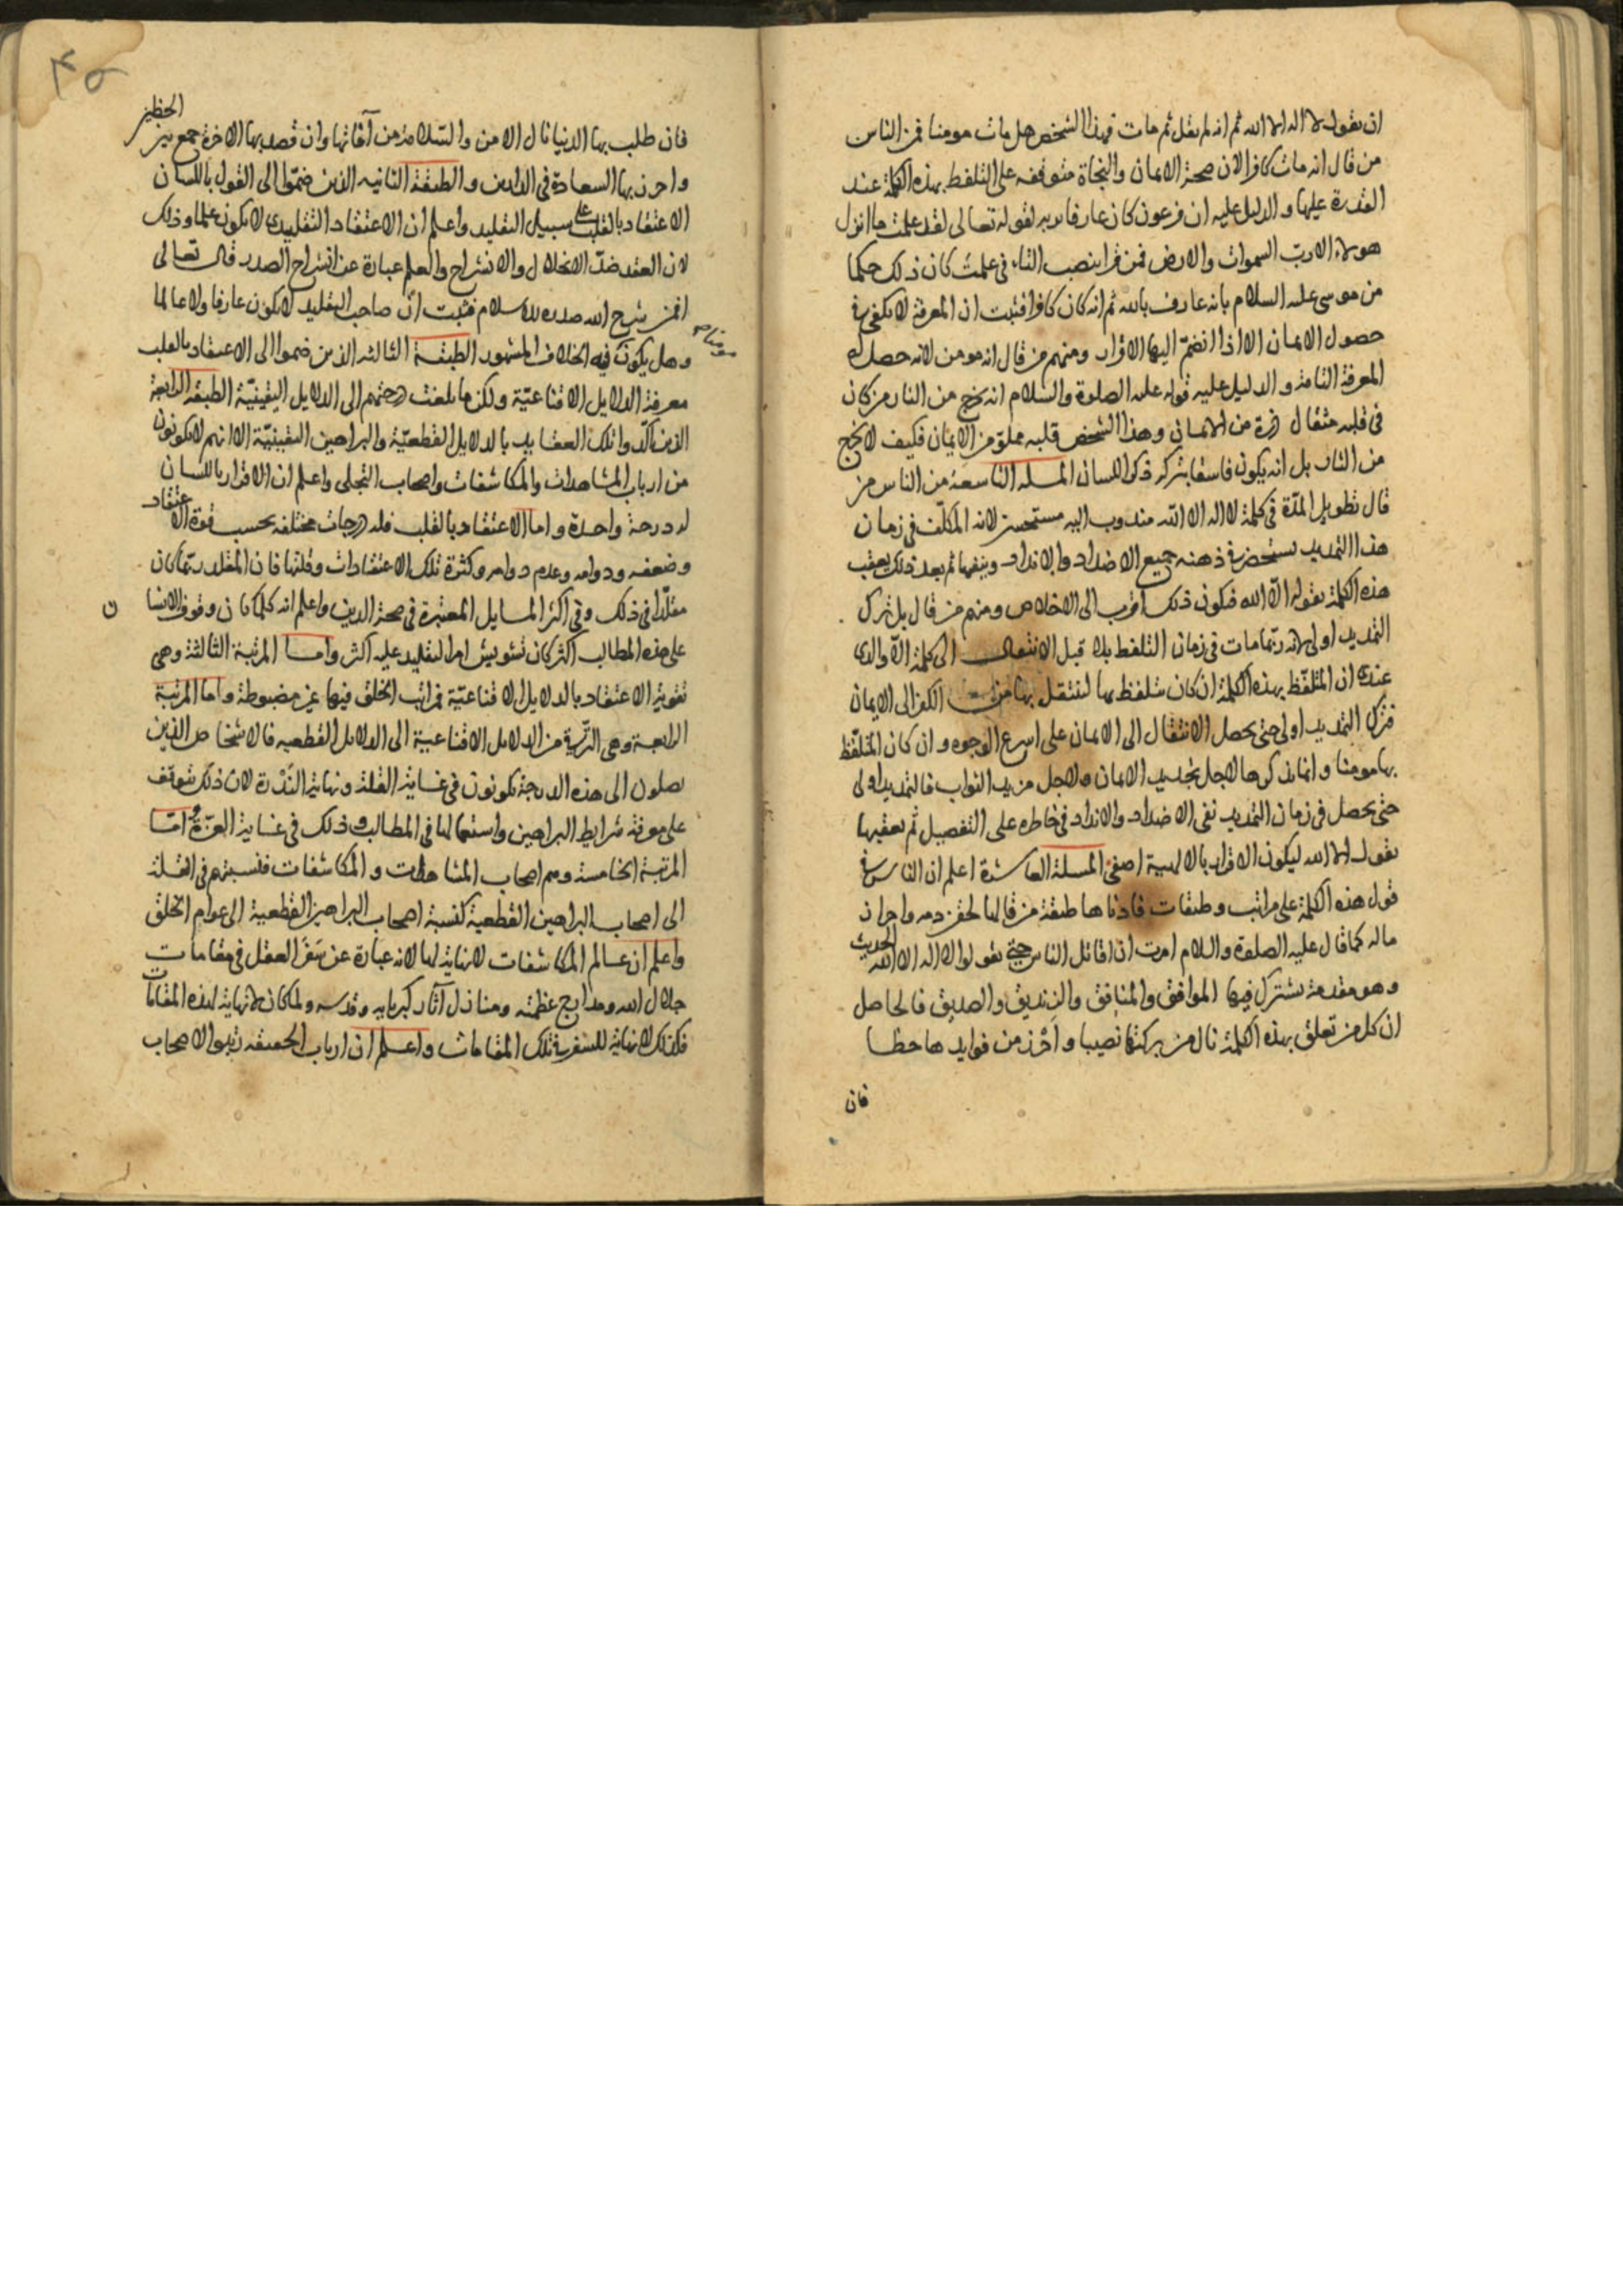 ان يقول لا اله الا الله ثم انه لم يقل ثم مات فهذا الشخص هل مات مومنا فمن الناس
من قال انه مات كافرا لان صحة الايمان والنجاة متوقفه على التلفظ بهذه الكلمة عند
القدرة عليها و الدليل عليه ان فرعون كان عارفا بربه لقوله تعالى لقد علمت ما انزل
هولاء الا رب السموات والارض فمن قرا بنصب التاء في علمت كان ذلك حكما
من موسى عليه السلام بانه عارف بالله ثم انه كان كافرا فثبت ان المعرفة لا تكفي في
حصول الايمان الا اذا انضم اليها الاقرار ومنهم من قال انه مومن لانه حصل له
المعرفة التامة و الدليل عليه قوله عليه الصلوة والسلام انه يخرج من النار من كان
في قلبه مثقال ذرة من الايمان وهذا الشخص قلبه مملو من الايمان فكيف لا يخرج
من النار بل انه يكون فاسقا بتركه ذكر اللسان المسله التاسعة من الناس من
قال تطويل المدة في كلمة لا اله الا الله مندوب اليه مستحسن لانه المكلف في زمان
هذا التمديد يستحضر في ذهنه جميع الاضداد والانداد وينفيها ثم بعد ذلك يعقب
هذه الكلمة بقوله الا الله فيكون ذلك اقرب الى الاخلاص ومنهم من قال بل ترك
التمديد اولى لانه ربما مات في زمان التلفظ بلا قبل الانتقال الى كلمة الا والذي
عندي ان المتلفظ بهذه الكلمة ان كان يتلفظ بها لينتقل بها من الكفر الى الايمان
فترك التمديد اولى حتى يحصل الانتقال الى الايمان على اسرع الوجوه و ان كان المتلفظ
بها مومنا و انما يذكرها لاجل تجديد الايمان ولاجل مزيد الثواب فالتمديد اولى
حتى يحصل في زمان التمديد نفي الاضداد والانداد في خاطره على التفصيل ثم يعقبها
بقول الا الله ليكون الاقرار بالالهية اصفى المسلة العاشرة اعلم ان الناس في
قول هذه الكلمة على مراتب و طبقات فادناها طبقة من قالها لحقن دمه واحراز
ماله كما قال عليه الصلوة والسلام امرت ان اقاتل الناس حتى يقولوا لا اله الا الله الحديث
وهو مقدمة يشترك فيها الموافق والمنافق والزنديق والصديق فالحاصل
ان كل من تعلق بهذه الكلمة نال من بركتها نصيبا و احرز من فوايدها حظا
فان
٤٥
فان طلب بها الدنيا نال الامن والسلامة من آفاتها وان قصد بها الاخرة جمع بين الحظين
واحرز بها السعادة في الدارين والطبقة الثانيه الذين ضموا الى القول باللسان
الاعتقاد بالقلب على سبيل التقليد واعلم ان الاعتقاد التقليدي لا يكون علما وذلك
لان العقد ضد الانحلال والانشراح والعلم عبارة عن انشراح الصدر قال تعالى
افمن شرح الله صدره للاسلام فثبت ان صاحب التقليد لا يكون عارفا ولا عالما
وهل يكون فيه الخلاف المشهور الطبقة الثالثه الذين ضموا الى الاعتقاد بالقلب
معرفة الدلايل الاقناعية ولكن ما بلغت درجتهم الى الدلايل اليقينية الطبقة الرابعة
الذين اكدوا تلك العقايد بالدلايل القطعية والبراهين اليقينية الا انهم لا يكونون
من ارباب المشاهدات والمكاشفات واصحاب التجلى واعلم ان الاقرار باللسان
له درجة واحدة واما الاعتقاد بالقلب فله درجات مختلفه بحسب قوة الاعتقاد
وضعفه ودوامه وعدم دوامه وكثرة تلك الاعتقادات وقلتها فان المقلد ربما كان
مقلدا في ذلك وفي اكثر المسايل المعتبرة في صحة الدين واعلم انه كلما كان وقوف الانسان
على هذه المطالب اكثر كان تشويش امر التقليد عليه اكثر واما المرتبة الثالثة وهي
تقوية الاعتقاد بالدلايل الاقناعية فمراتب الخلق فيها غير مضبوطة واما المرتبة
الرابعة وهي الترقي من الدلايل الاقناعية الى الدلايل القطعيه فالاشخاص الذين
يصلون الى هذه الدرجة يكونون في غاية القلة ونهاية الندرة لان ذلك يتوقف
على معرفة شرايط البراهين واستعمالها في المطالب وذلك في غاية العزة واما
المرتبة الخامسة وهم اصحاب المشاهدات و المكاشفات فنسبتهم في القلة
الى اصحاب البراهين القطعية كنسبة اصحاب البراهين القطعية الى عوام الخلق
واعلم ان عالم المكاشفات لا نهاية لها لانه عبارة عن سفر العقل في مقامات
جلال الله ومدارج عظمته ومنازل آثار كبريايه وقدسه ولما كان لا نهاية لهذه المقامات
فكذلك لا نهاية للسفر في تلك المقامات واعلم ان ارباب الحقيقه رتبوا لاصحاب